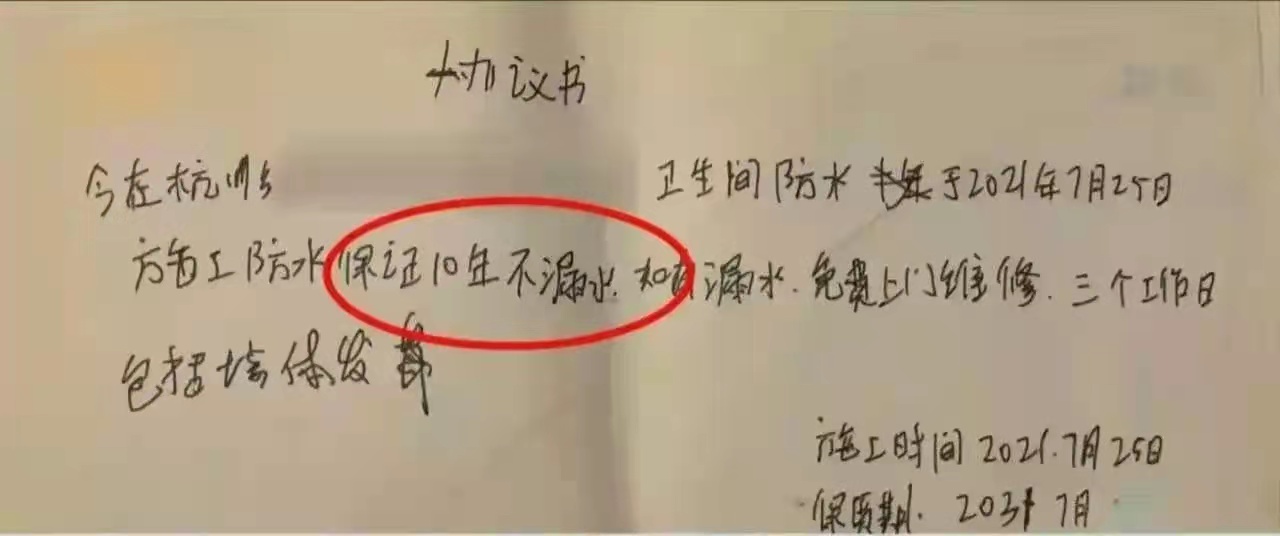 协议书
今在杭州 卫生间防水 于2021年7月25日
施工防水保证10年不漏水.如有漏水.免费上门维修.三个工作日
包括墙体发霉
施工时间2021.7月25日
保质期.2031 7月